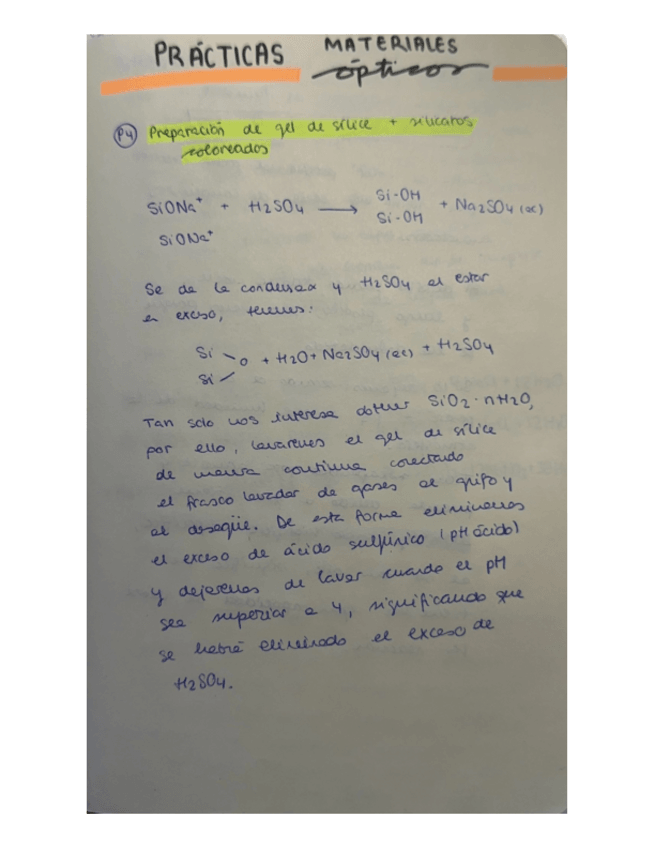 PRÁCTICAS MATERIALES
ópticos
P4 Preparación de gel de sílice + silicatos
coloreados
SiONa⁺ + H2SO4 ⟶ Si-OH
Si-OH + Na2SO4 (ac)
SiONa⁺
Se da la condensax y H2SO4 al estar
en exceso, tenemos:
Si
Si O + H2O + Na2SO4 (ac) + H2SO4
Tan solo nos interesa obtener SiO2·nH2O,
por ello, lavaremos el gel de sílice
de manera continua conectando
el frasco lavador de gases al grifo y
al desagüe. De esta forma eliminamos
el exceso de ácido sulfúrico (pH ácido)
y dejaremos de lavar cuando el pH
sea superior a 4, significando que
se habrá eliminado el exceso de
H2SO4.